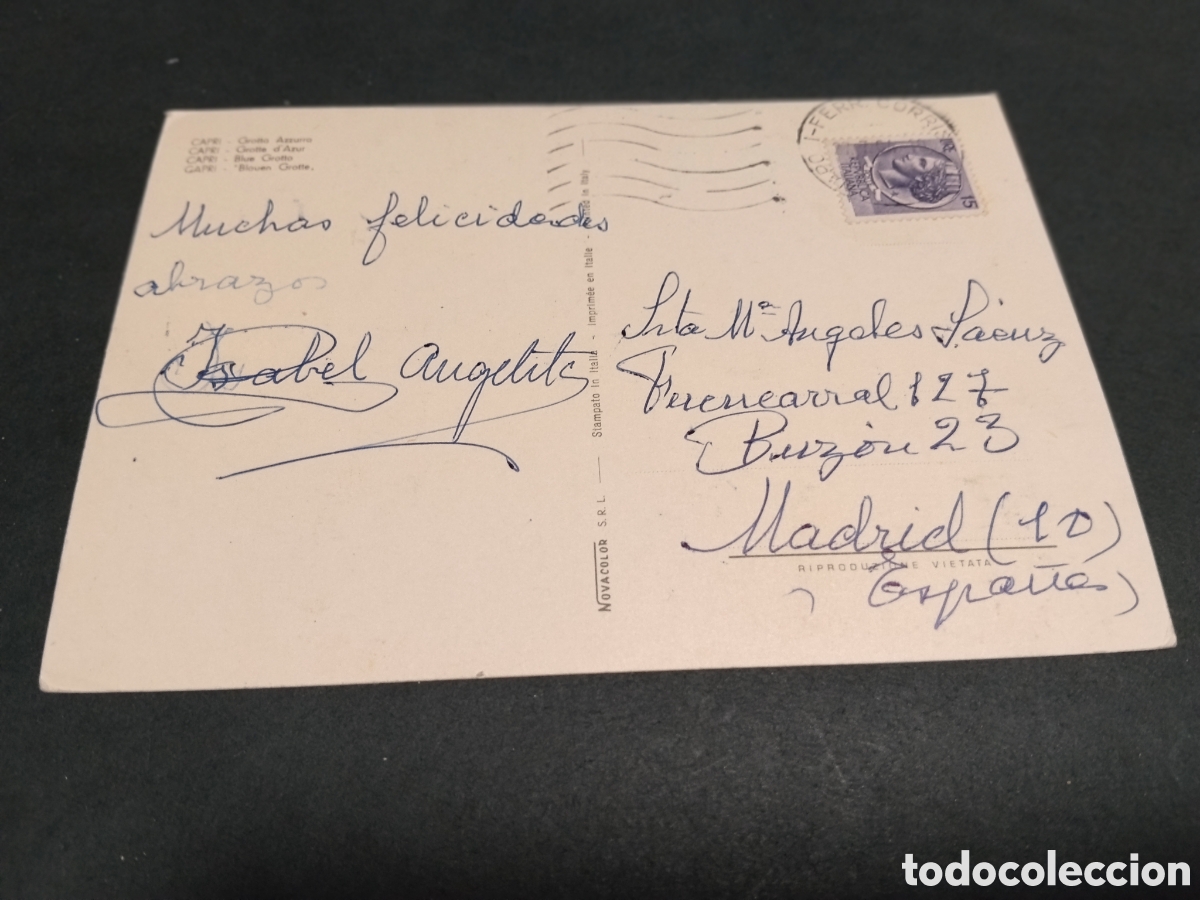 CAPRI - Grotta Azzurra
CAPRI - Grotte d'Azur
CAPRI - Blue Grotto
CAPRI - "Blauen Grotte„
Muchas felicidades
abrazos
Isabel Angelita
NOVACOLOR S.R.L. — Stampato in Italia - Imprimée en Italie - in Italy
I-FERR. CORRISP
REPUBBLICA ITALIANA
15
Srta Mª Angeles Sáenz
Fuencarral 127
Buzón 23
Madrid (10)
RIPRODUZIONE VIETATA
(España)
todocoleccion